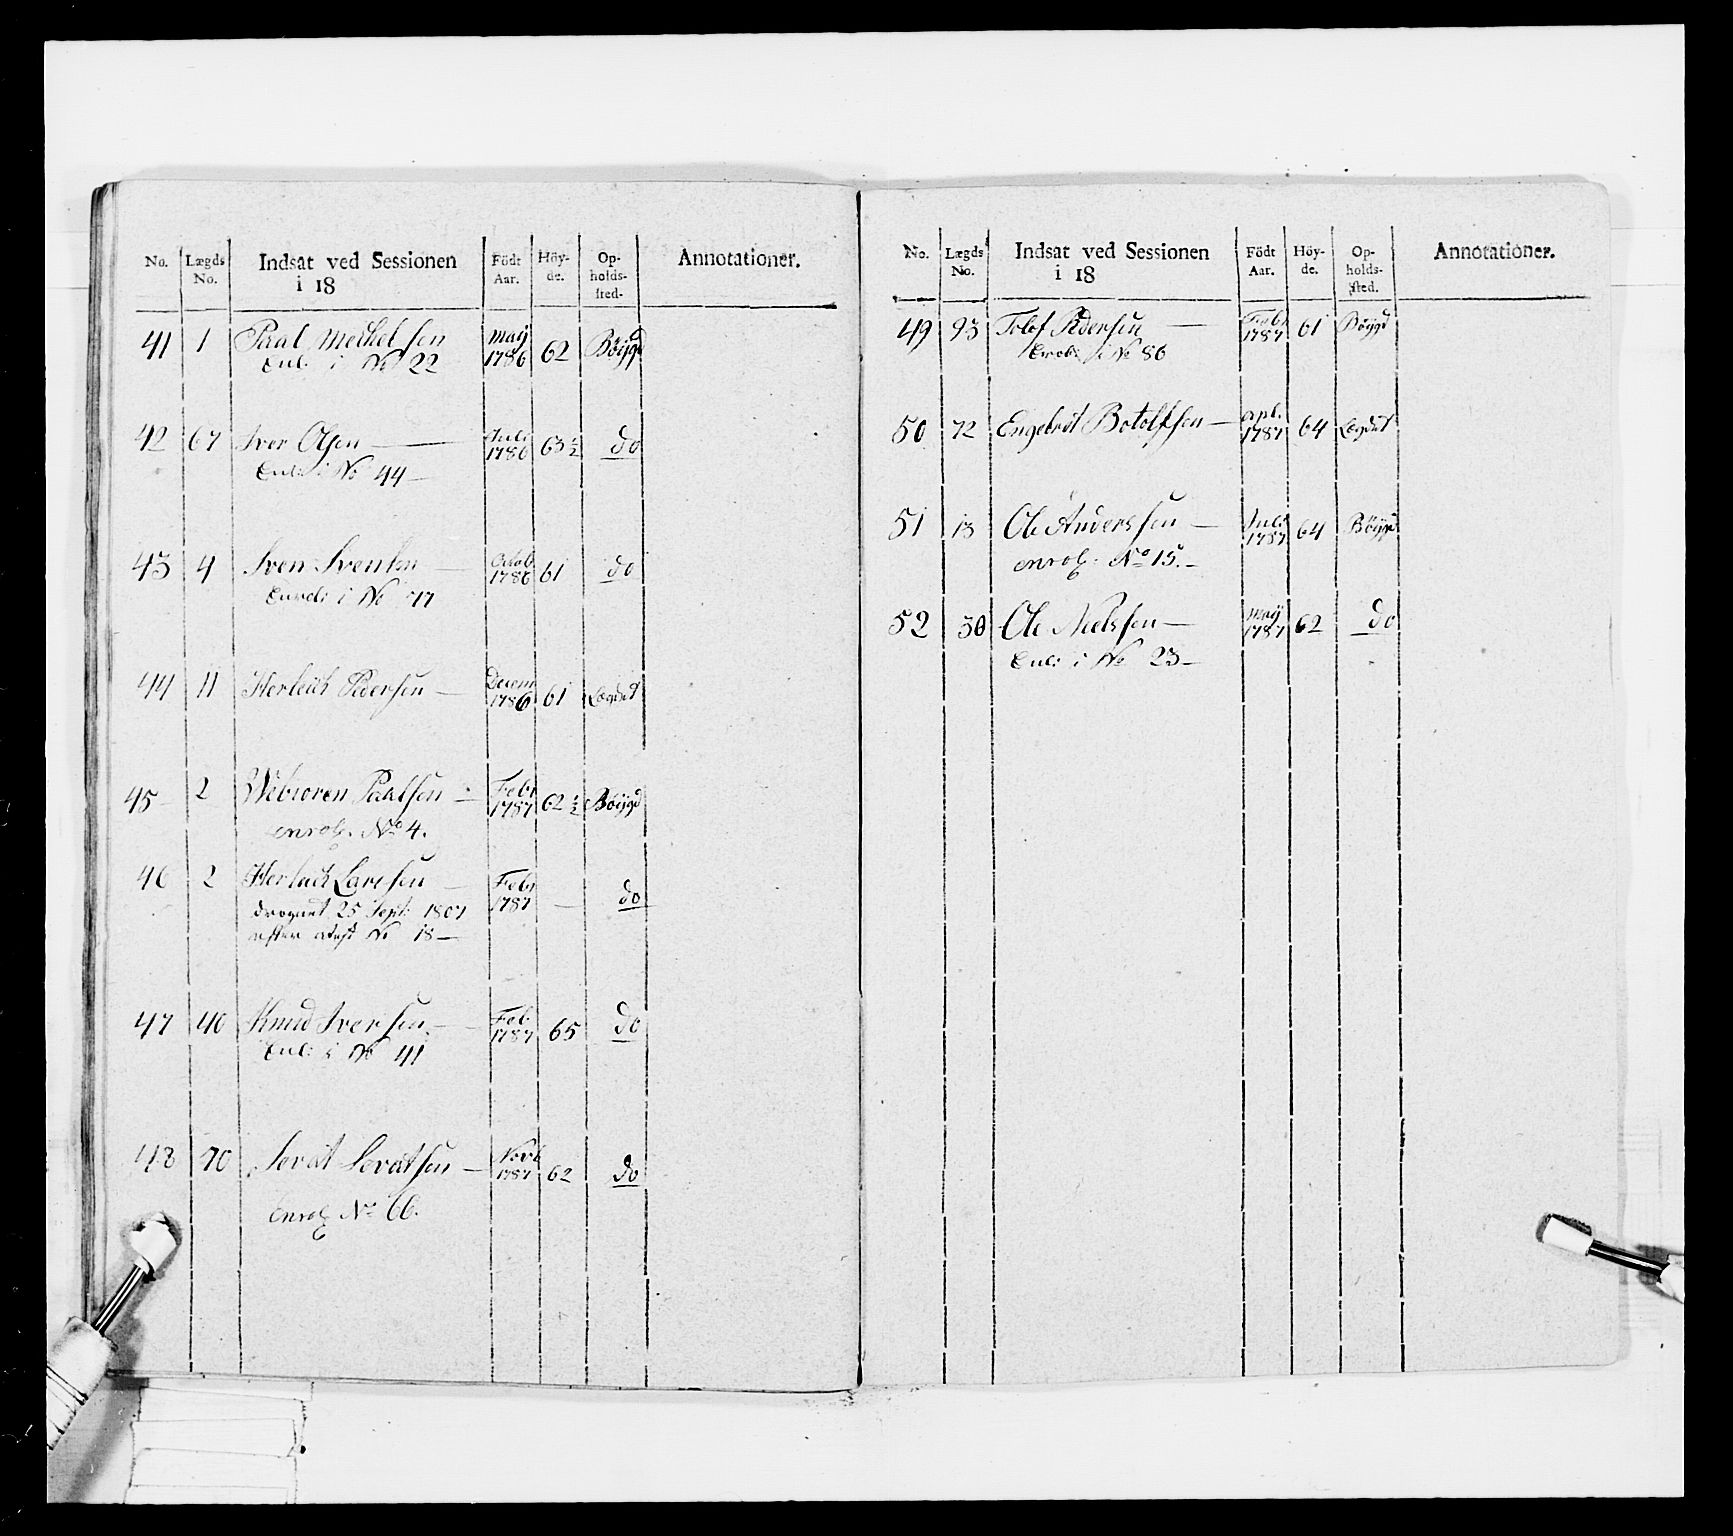 No. Lægds No. Indsat ved Sessionen i 18 Födt Aar. Höy-de. Op-holds-sted. Annotationer.
41 1 Paal Mechelsen Maij 1786 62 Böijgd
Enl: i No 22
42 67 Iver Olsen — Juli 1786 63 1/2 do
Enl: i No 44 —
43 4 Sven Svensen — Octob 1786 61 do
Enrol: i No 77
44 11 Herleich Pedersen — Decem 1786 61 Lægdet
45 — 2 Webioren Paalsen — Febr 1787 62 1/2 Böijgd
enrol. No 4.
46 2 Herleich Larsen — Febr 1787 — do
drognet 25 Sept: 1807
efter No 18 —
47 40 Knud Iversen — Feb. 1787 65 do
Enl: i No 41
48 70 Sevat Sevatsen — Novb 1787 62 do
Enrol No 66.
No. Lægds No. Indsat ved Sessionen i 18 Födt Aar. Höy-de. Op-holds-sted. Annotationer.
49 93 Tolof Pedersen — Febr 1787 61 Böygd
Enrol: i No 86
50 72 Engebret Botolfsen — apl. 1787 64 Lægdet
51 13 Ole Anderssen — Juli 1787 64 Böijgd
enrol: No 15. —
52 30 Ole Nielssen — Maij 1787 62 do
Enl: i No 23 —